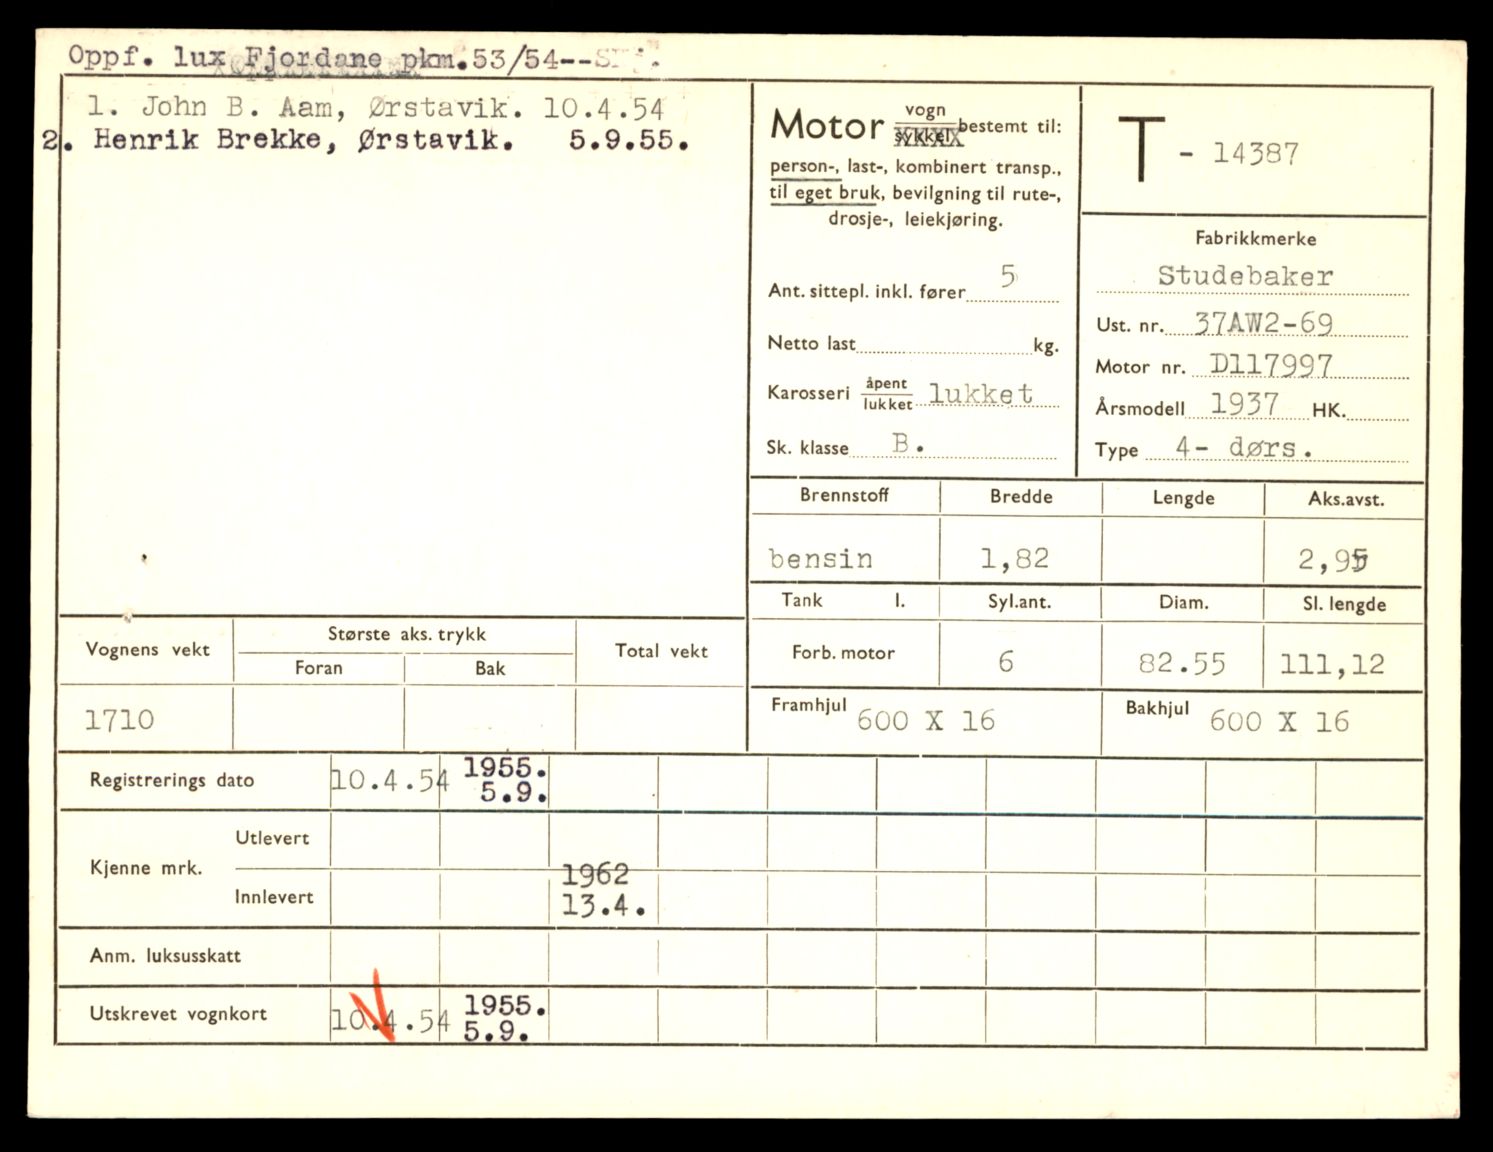 Oppf. lux Fjordane pkm. 53/54--
1. John B. Aam, Ørstavik. 10.4.54
2. Henrik Brekke, Ørstavik. 5.9.55.
Motor vogn sykkel bestemt til:
person-, last-, kombinert transp.,
til eget bruk, bevilgning til rute-,
drosje-, leiekjøring.
Ant. sittepl. inkl. fører 5
Netto last kg.
Karosseri åpent lukket lukket
Sk. klasse B.
T - 14387
Fabrikkmerke
Studebaker
Ust. nr. 37AW2-69
Motor nr. D117997
Årsmodell 1937 HK.
Type 4- dørs.
Brennstoff Bredde Lengde Aks.avst.
bensin 1,82 2,95
Tank l. Syl.ant. Diam. Sl. lengde
Forb. motor 6 82.55 111,12
Framhjul 600 X 16 Bakhjul 600 X 16
Vognens vekt Største aks. trykk Total vekt
Foran Bak
1710
Registrerings dato 10.4.54 1955. 5.9.
Kjenne mrk. Utlevert
Innlevert 1962 13.4.
Anm. luksusskatt
Utskrevet vognkort 10.4.54 1955. 5.9.